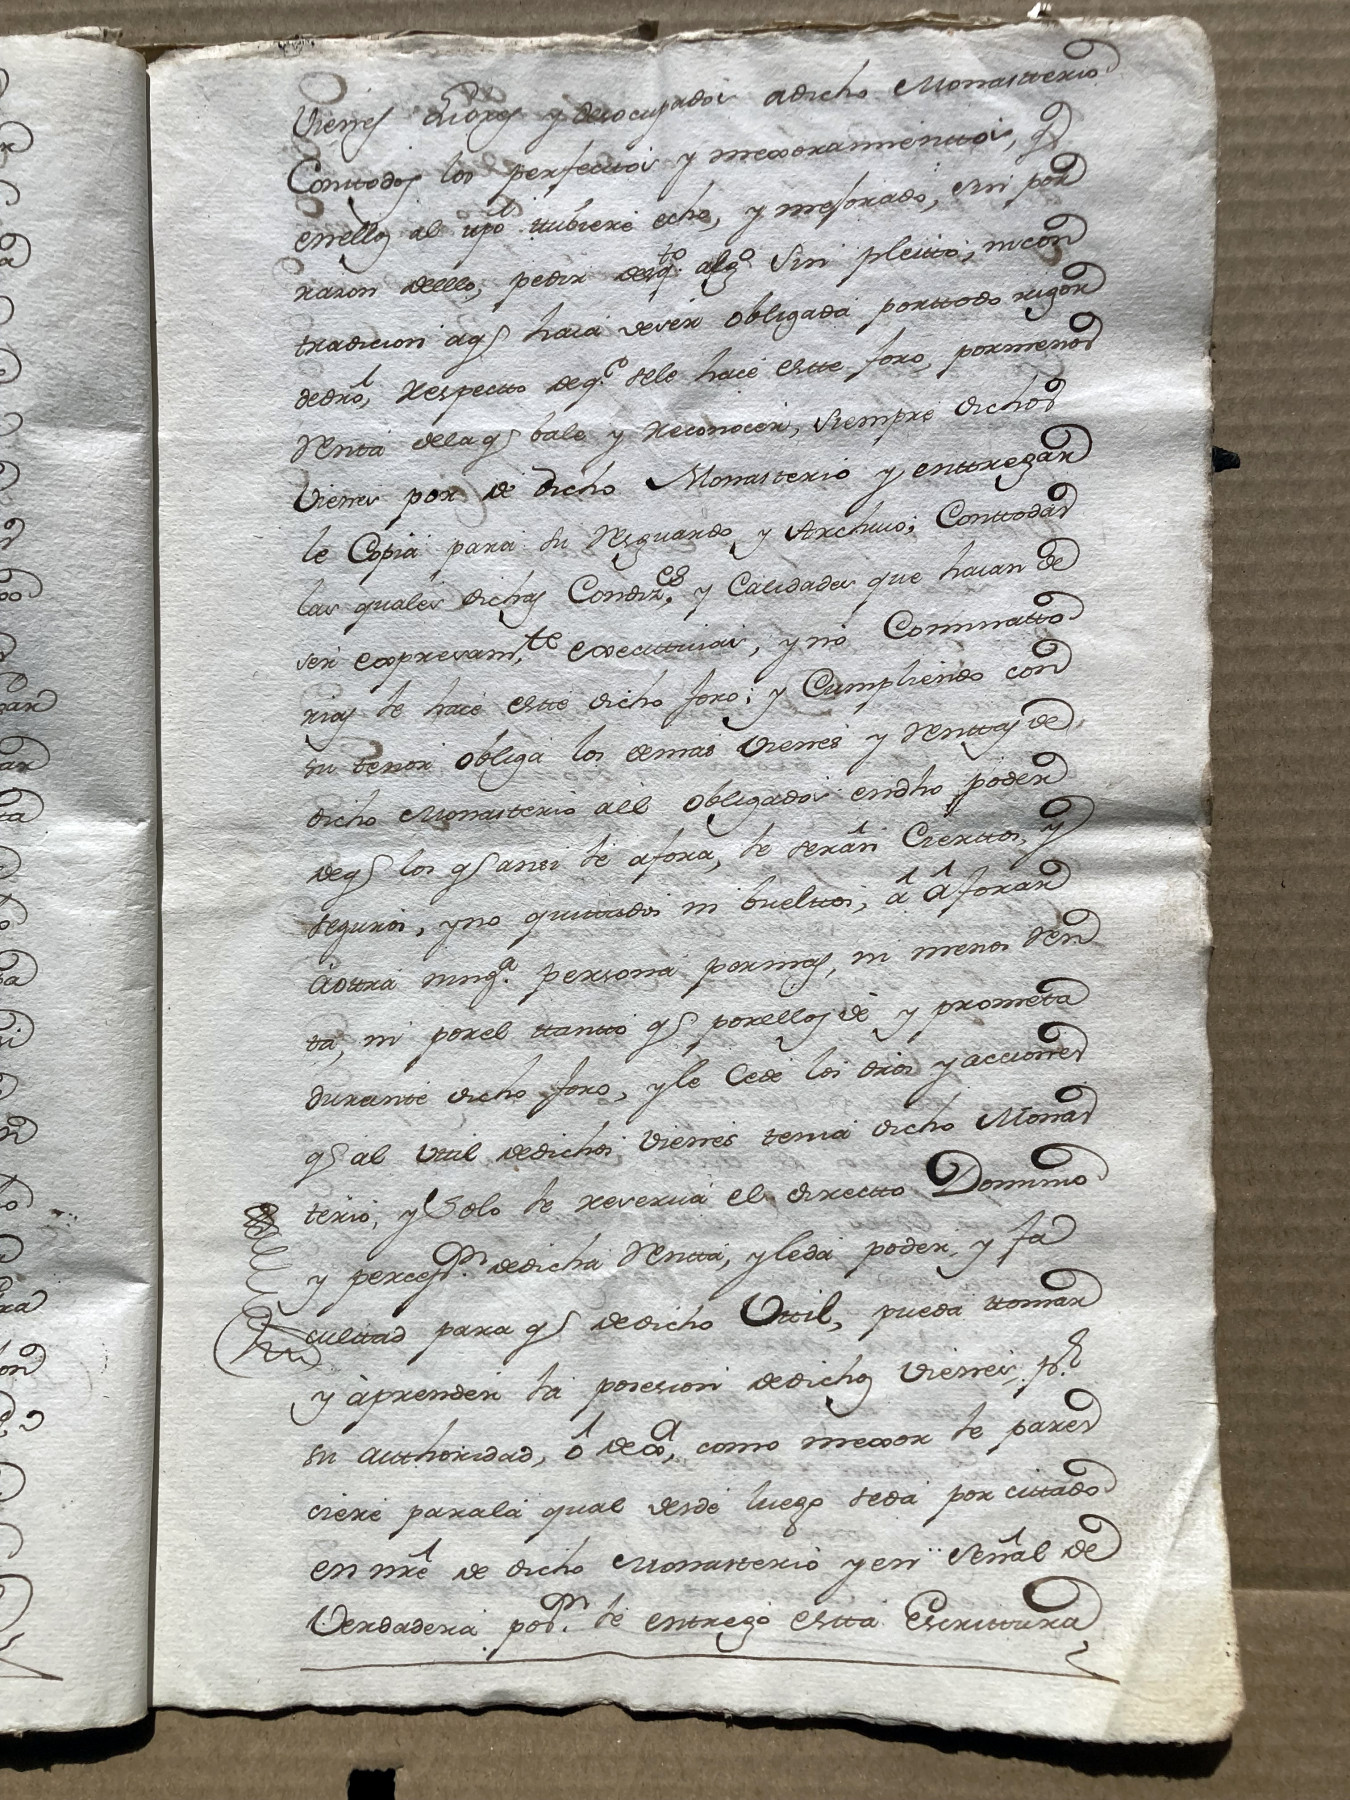 Vienes Libres y desocupados adicho Monasterio
Conttodos los perfectos y mexoramienttos, q
enellos al tpo ttubiere echo, y mejorado, sin por
razon dello, pedir desqto algo sin pleitto, ni con
tradicion aqe haia deser obligada porttodo rigor
dedro, Respectto deq.e sele hace estte foro, pormenos
Rentta dela qe bale y Reconocer, siempre dichos
Vienes por de dicho Monasterio y enttregar
le Copia para su Resguardo y Archivo; Conttodas
las quales dichas Condiz.es y Calidades que haian de
ser expresam.te executtivas, y no Cominatto
rias le hace este dicho foro; y Cumpliendo con
su tenor obliga los demas vienes y Renttas de
dicho Monasterio aél obligados endho poder
deqe los qe ansi le afora, le serán Ciertos, y
seguros, y no quittados ni bueltos, á áforar
áottra ning.a persona pormas, ni menos Ren
ta, ni porel ttantto qe porellos dé y prometa
durante dicho foro, y le Cede los dros y acciones
qe al Uttil dedichos Vienes tenia dicho Monas
terio, y Solo le reserva el directto Dominio
y percep.on dedicha Rentta, y leda poder, y fa
culttad para qe dedicho Uttil, pueda ttomar
y aprender la posesion dedichos Vienes, p.r
su authoridad, ó dexa, como mexor le pares
ciere parala qual desde luego seda por cittado
en nre de dicho Monasterio y en señal de
Verdadera pos.on le entrego estta Escrittura